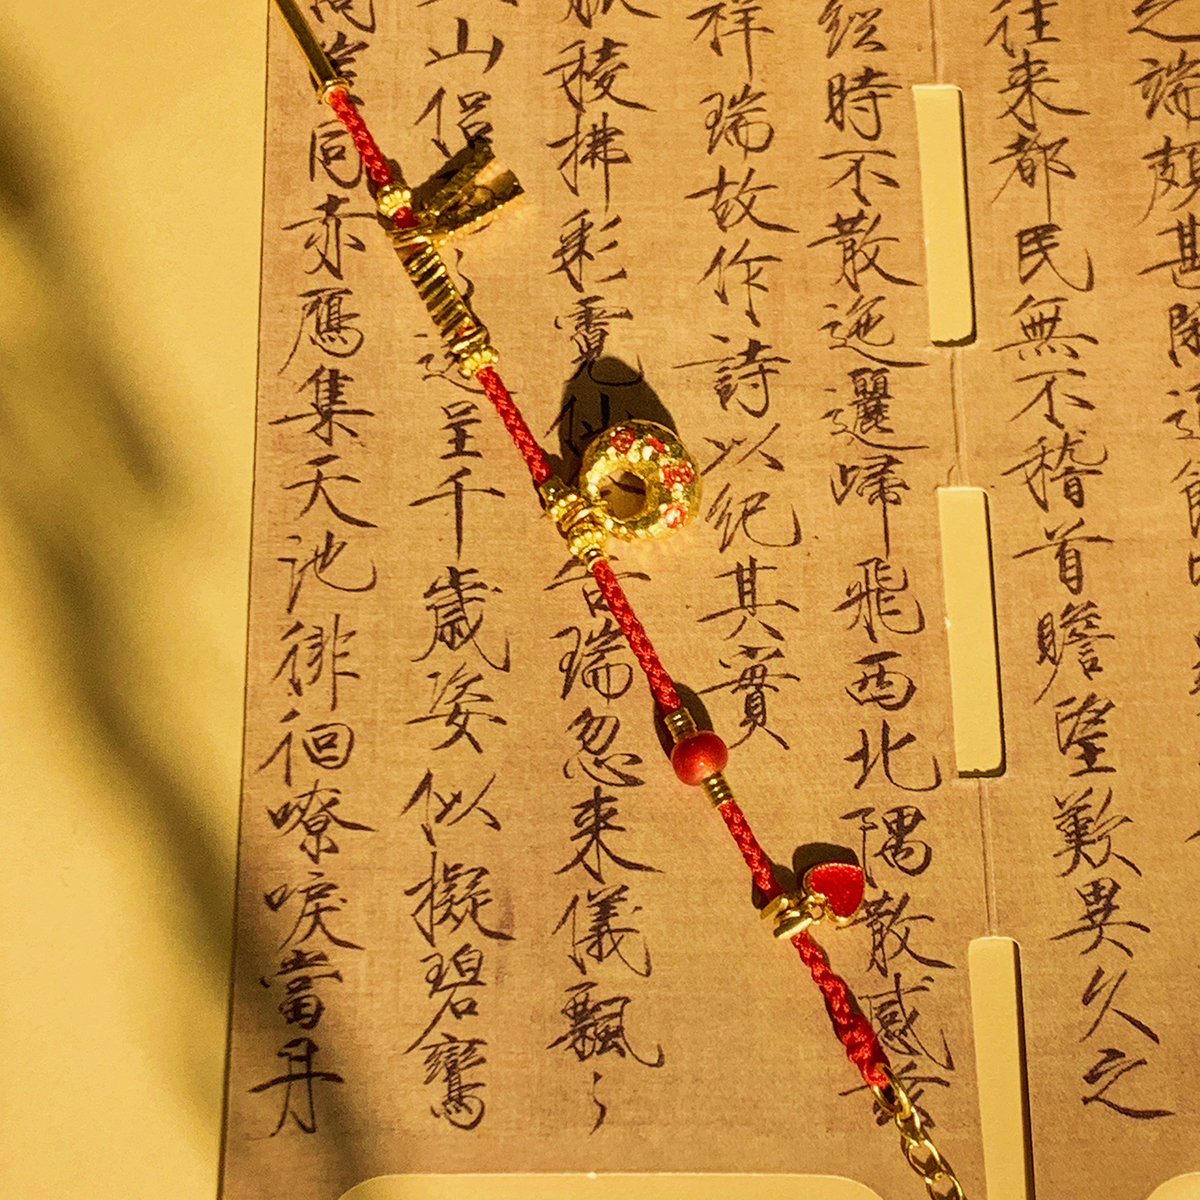 之端頗甚閑適
往來都民無不稽首瞻望歎異久之
經時不散迤邐歸飛西北隅散感茲
祥瑞故作詩以紀其實
稜拂彩霓仙告瑞忽來儀飄〻
山侶〻還呈千歲姿似擬碧鸞
同赤鴈集天池徘徊嘹唳當丹